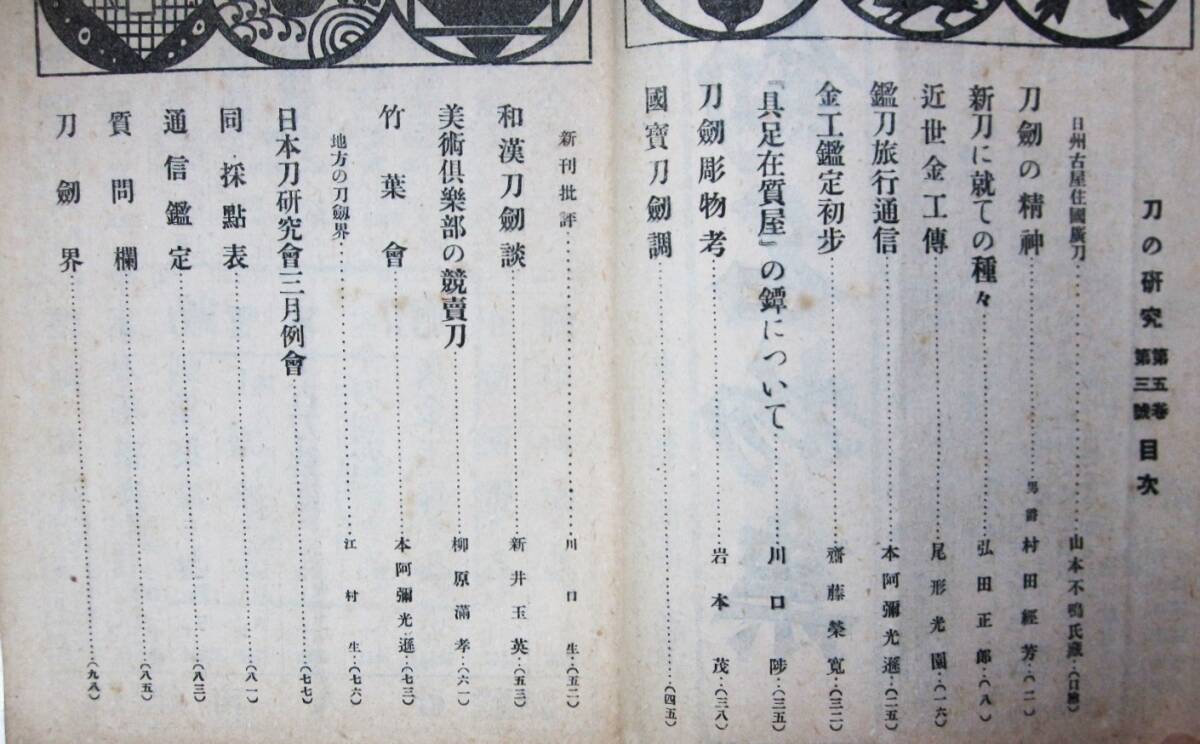 刀の研究 第五巻 第三號 目次
日州古屋住國廣刀……山本不鳴氏藏…(口繪)
刀劍の精神……男爵 村田經芳…(二)
新刀に就ての種々……弘田正郎…(八)
近世金工傳……尾形光園…(一六)
鑑刀旅行通信……本阿彌光遜…(二五)
金工鑑定初步……齋藤榮寬…(三二)
『具足在質屋』の鐔について……川口陟…(三五)
刀劍彫物考……岩本茂…(三八)
國寶刀劍調……(四五)
新刊批評……川口生…(五二)
和漢刀劍談……新井玉英…(五三)
美術倶樂部の競賣刀……柳原滿孝…(六一)
竹葉會……本阿彌光遜…(七三)
地方の刀劔界……江村生…(七六)
日本刀研究會三月例會……(七七)
同採點表……(八一)
通信鑑定……(八三)
質問欄……(八五)
刀劍界……(九八)